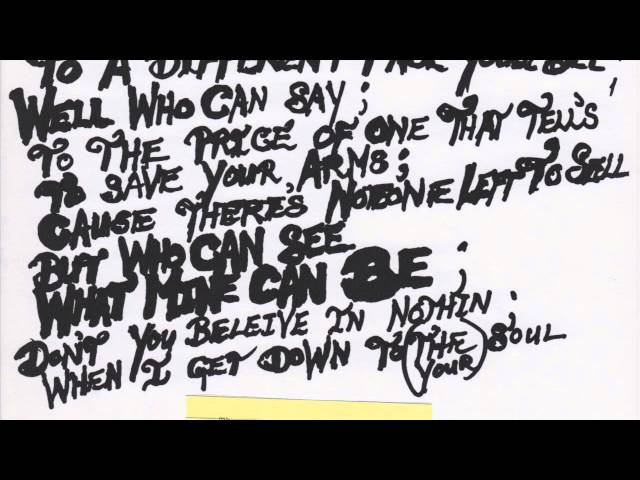 TO A DIFFERENT
WELL WHO CAN SAY;
TO THE PRICE OF ONE THAT TELL'S
TO SAVE YOUR ARMS;
CAUSE THERE'S NOBONE LEFT TO SELL
BUT WHO CAN SEE
WHAT MINE CAN BE;
DON'T YOU BELEIVE IN NOTHIN;
WHEN I GET DOWN TO (THE) SOUL
(YOUR)